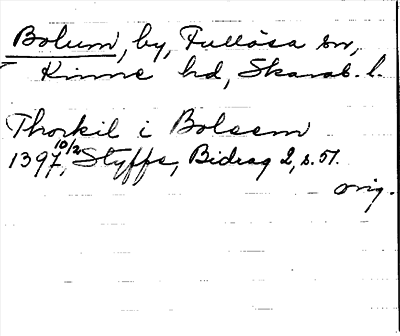 Bolum, by, Fullösa sn,
Kinne hd, Skarab. l.
Thorkil i Bolsem
1397 10/2, Styffe, Bidrag 2, s. 51.
orig.